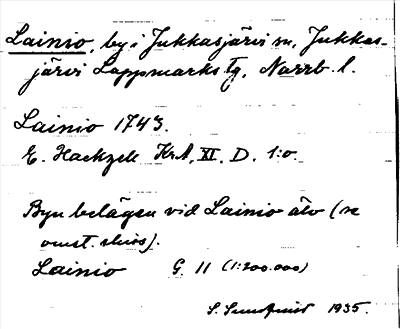 Lainio, by i Jukkasjärvi sn, Jukkas-
järvi Lappmarks tg, Norrb. l.
Lainio 1743.
E. Hackzell KrA, XI. D. 1:o.
Byn belägen vid Lainio älv (se
omst. skiss).
Lainio G. 11 (1:200.000)
S. Sundqvist 1935.